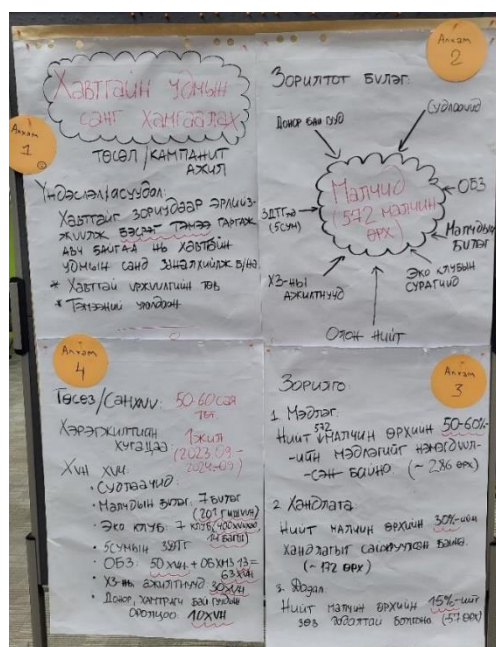 Алхам
1
Хавтгайн удмын
санг хамгаалах
төсөл / кампанит
ажил
Үндэслэл/асуудал:
Хавтгайг зориудаар эрлийз-
жүүлж бэсрэг тэмээ гаргаж
авч байгаа нь хавтгайн
удмын санд заналхийлж б/на.
* Хавтгай үржүүлгийн төв
* Тэмээний уралдаан
Алхам
2
Зорилтот бүлэг
Донор байгууд
Судлаачид
ЗДТГаа
(5 сум)
Малчид
(572 малчин
өрх)
ОБЗ
Малчдын
бүлэг
Эко клубын
сурагчид
ХЗ-ны
ажилтнууд
Олон нийт
Алхам
4
Төсөв/Санхүү: 50-60 сая
төг.
Хэрэгжилтийн
хугацаа
1 жил
(2023.09-
2024.09)
Хүн хүч:
• Судлаачид
• Малчдын бүлэг: 7 бүлэг
(201 гишүүн)
• Эко клуб: 7 клуб,
14 багш
• 5 сумын ЗДТГ
• ОБЗ: 50 хүн + ОБХМЗ 13 =
63 хүн
• ХЗ-ны ажилтнууд 30 хүн
• Донор, хамтрагч байгууллагын
оролцоо 10 хүн
Алхам
3
Зорилго
1. Мэдлэг
Нийт 572 малчин өрхийн 50-60%-
-ийн мэдлэгийг нэмэгдүүл-
-сэн байна. (~286 өрх)
2. Хандлага
Нийт малчин өрхийн 30%-ийн
хандлагыг сайжруулсан байна.
(~172 өрх)
3. Дадал
Нийт малчин өрхийн 15%-ийг
зөв дадалтай болгоно (57 өрх)